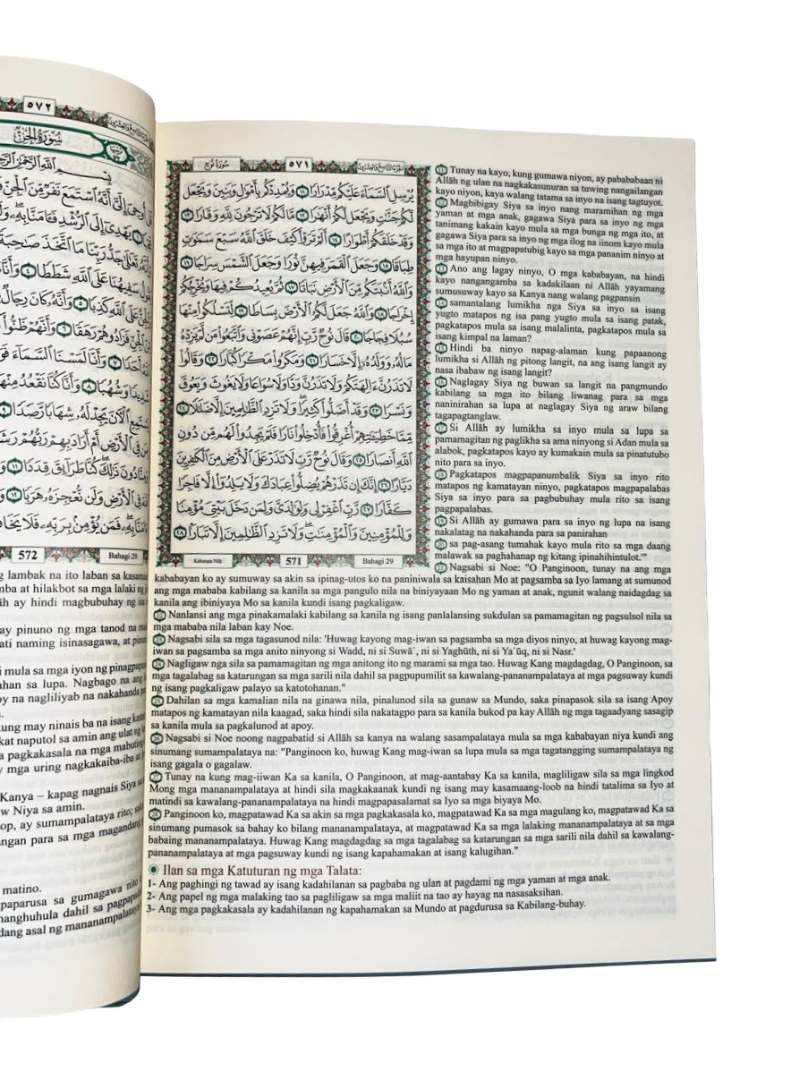 سورة نوح
٥٧١
الجزء التاسع والعشرون
يُرْسِلِ ٱلسَّمَآءَ عَلَيْكُم مِّدْرَارًا ١١ وَيُمْدِدْكُم بِأَمْوَٰلٍ وَبَنِينَ وَيَجْعَل
لَّكُمْ جَنَّـٰتٍ وَيَجْعَل لَّكُمْ أَنْهَـٰرًا ١٢ مَّا لَكُمْ لَا تَرْجُونَ لِلَّهِ وَقَارًا ١٣
وَقَدْ خَلَقَكُمْ أَطْوَارًا ١٤ أَلَمْ تَرَوْا۟ كَيْفَ خَلَقَ ٱللَّهُ سَبْعَ سَمَـٰوَٰتٍ
طِبَاقًا ١٥ وَجَعَلَ ٱلْقَمَرَ فِيهِنَّ نُورًا وَجَعَلَ ٱلشَّمْسَ سِرَاجًا ١٦
وَٱللَّهُ أَنۢبَتَكُم مِّنَ ٱلْأَرْضِ نَبَاتًا ١٧ ثُمَّ يُعِيدُكُمْ فِيهَا وَيُخْرِجُكُمْ
إِخْرَاجًا ١٨ وَٱللَّهُ جَعَلَ لَكُمُ ٱلْأَرْضَ بِسَاطًا ١٩ لِّتَسْلُكُوا۟ مِنْهَا
سُبُلًا فِجَاجًا ٢٠ قَالَ نُوحٌ رَّبِّ إِنَّهُمْ عَصَوْنِى وَٱتَّبَعُوا۟ مَن لَّمْ يَزِدْهُ
مَالُهُۥ وَوَلَدُهُۥٓ إِلَّا خَسَارًا ٢١ وَمَكَرُوا۟ مَكْرًا كُبَّارًا ٢٢ وَقَالُوا۟
لَا تَذَرُنَّ ءَالِهَتَكُمْ وَلَا تَذَرُنَّ وَدًّا وَلَا سُوَاعًا وَلَا يَغُوثَ وَيَعُوقَ
وَنَسْرًا ٢٣ وَقَدْ أَضَلُّوا۟ كَثِيرًا وَلَا تَزِدِ ٱلظَّـٰلِمِينَ إِلَّا ضَلَـٰلًا ٢٤
مِّمَّا خَطِيٓـَٔـٰتِهِمْ أُغْرِقُوا۟ فَأُدْخِلُوا۟ نَارًا فَلَمْ يَجِدُوا۟ لَهُم مِّن دُونِ
ٱللَّهِ أَنصَارًا ٢٥ وَقَالَ نُوحٌ رَّبِّ لَا تَذَرْ عَلَى ٱلْأَرْضِ مِنَ ٱلْكَـٰفِرِينَ
دَيَّارًا ٢٦ إِنَّكَ إِن تَذَرْهُمْ يُضِلُّوا۟ عِبَادَكَ وَلَا يَلِدُوٓا۟ إِلَّا فَاجِرًا
كَفَّارًا ٢٧ رَّبِّ ٱغْفِرْ لِى وَلِوَٰلِدَىَّ وَلِمَن دَخَلَ بَيْتِىَ مُؤْمِنًا
وَلِلْمُؤْمِنِينَ وَٱلْمُؤْمِنَـٰتِ وَلَا تَزِدِ ٱلظَّـٰلِمِينَ إِلَّا تَبَارًا ٢٨
Kabanata Nūḥ
571
Bahagi 29
11 Tunay na kayo, kung gumawa niyon, ay pabababaan ni
Allāh ng ulan na nagkakasunuran sa tuwing nangailangan
kayo niyon, kaya walang tatama sa inyo na isang tagtuyot.
12 Magbibigay Siya sa inyo nang maramihan ng mga
yaman at mga anak, gagawa Siya para sa inyo ng mga
tanimang kakain kayo mula sa mga bunga ng mga ito, at
gagawa Siya para sa inyo ng mga ilog na iinom kayo mula
sa mga ito at magpapatubig kayo sa mga pananim ninyo at
mga hayupan ninyo.
13 Ano ang lagay ninyo, O mga kababayan, na hindi
kayo nangangamba sa kadakilaan ni Allāh yayamang
sumusuway kayo sa Kanya nang walang pagpansin
14 samantalang lumikha nga Siya sa inyo sa isang
yugto matapos ng isa pang yugto mula sa isang patak,
pagkatapos mula sa isang malalinta, pagkatapos mula sa
isang kimpal na laman?
15 Hindi ba ninyo napag-alaman kung papaanong
lumikha si Allāh ng pitong langit, na ang isang langit ay
nasa ibabaw ng isang langit?
16 Naglagay Siya ng buwan sa langit na pangmundo
kabilang sa mga ito bilang liwanag para sa mga
naninirahan sa lupa at naglagay Siya ng araw bilang
tagapagtanglaw.
17 Si Allāh ay lumikha sa inyo mula sa lupa sa
pamamagitan ng paglikha sa ama ninyong si Adan mula sa
alabok, pagkatapos kayo ay kumakain mula sa pinatutubo
nito para sa inyo.
18 Pagkatapos magpapanumbalik Siya sa inyo rito
matapos ng kamatayan ninyo, pagkatapos magpapalabas
Siya sa inyo para sa pagbubuhay mula rito sa isang
pagpapalabas.
19 Si Allāh ay gumawa para sa inyo ng lupa na isang
nakalatag na nakahanda para sa panirahan
20 sa pag-asang tumahak kayo mula rito sa mga daang
malawak sa paghahanap ng kitang ipinahihintulot.'"
21 Nagsabi si Noe: "O Panginoon, tunay na ang mga
kababayan ko ay sumuway sa akin sa ipinag-utos ko na paniniwala sa kaisahan Mo at pagsamba sa Iyo lamang at sumunod
ang mga mababa kabilang sa kanila sa mga pangulo nila na biniyayaan Mo ng yaman at anak, ngunit walang naidagdag sa
kanila ang ibiniyaya Mo sa kanila kundi isang pagkaligaw.
22 Nanlansi ang mga pinakamalaki kabilang sa kanila ng isang panlalansing sukdulan sa pamamagitan ng pagsulsol nila sa
mga mababa nila laban kay Noe.
23 Nagsabi sila sa mga tagasunod nila: 'Huwag kayong mag-iwan sa pagsamba sa mga diyos ninyo, at huwag kayong mag-
iwan sa pagsamba sa mga anito ninyong si Wadd, ni si Suwā`, ni si Yaghūth, ni si Ya`ūq, ni si Nasr.'
24 Nagligaw nga sila sa pamamagitan ng mga anitong ito ng marami sa mga tao. Huwag Kang magdagdag, O Panginoon, sa
mga tagalabag sa katarungan sa mga sarili nila dahil sa pagpupumilit sa kawalang-pananampalataya at mga pagsuway kundi
ng isang pagkaligaw palayo sa katotohanan."
25 Dahilan sa mga kamalian nila na ginawa nila, pinalunod sila sa gunaw sa Mundo, saka pinapasok sila sa isang Apoy
matapos ng kamatayan nila kaagad, saka hindi sila nakatagpo para sa kanila bukod pa kay Allāh ng mga tagaadyang sasagip
sa kanila mula sa pagkalunod at apoy.
26 Nagsabi si Noe noong nagpabatid si Allāh sa kanya na walang sasampalataya mula sa mga kababayan niya kundi ang
sinumang sumampalataya na: "Panginoon ko, huwag Kang mag-iwan sa lupa mula sa mga tagatangging sumampalataya ng
isang gagala o gagalaw.
27 Tunay na kung mag-iiwan Ka sa kanila, O Panginoon, at mag-aantabay Ka sa kanila, magliligaw sila sa mga lingkod
Mong mga mananampalataya at hindi sila magkakaanak kundi ng isang may kasamaang-loob na hindi tatalima sa Iyo at
matindi sa kawalang-pananampalataya na hindi magpapasalamat sa Iyo sa mga biyaya Mo.
28 Panginoon ko, magpatawad Ka sa akin sa mga pagkakasala ko, magpatawad Ka sa mga magulang ko, magpatawad Ka sa
sinumang pumasok sa bahay ko bilang mananampalataya, at magpatawad Ka sa mga lalaking mananampalataya at sa mga
babaing mananampalataya. Huwag Kang magdagdag sa mga tagalabag sa katarungan sa mga sarili nila dahil sa kawalang-
pananampalataya at mga pagsuway kundi ng isang kapahamakan at isang kalugihan."
Ilan sa mga Katuturan ng mga Talata:
1- Ang paghingi ng tawad ay isang kadahilanan sa pagbaba ng ulan at pagdami ng mga yaman at mga anak.
2- Ang papel ng mga malaking tao sa pagliligaw sa mga maliit na tao ay hayag na nasasaksihan.
3- Ang mga pagkakasala ay kadahilanan ng kapahamakan sa Mundo at pagdurusa sa Kabilang-buhay.
٥٧٢
سورة الجن
572
Bahagi 29
ng lambak na ito laban sa kasamaan
mba at hilakbot sa mga lalaki ng
āh ay hindi magbubuhay ng isa
ay pinuno ng mga tanod na
ati naming isinasagawa, at
i mula sa mga iyon ng
ahan sa lupa. Nagbago na ang
oy na nagliliyab na nakahanda
kung may ninais ba na isang
kat naputol sa amin ang ulat ng
a pagkakasala na mga mabuting
y mga uring nagkakaiba-iba at
Kanya – kapag nagnais Siya
w Niya sa amin.
op, ay sumampalataya rito;
ngan para sa mga magandang
matino.
paparusa sa gumagawa nito
manghuhula dahil sa
dang asal ng mananampalataya